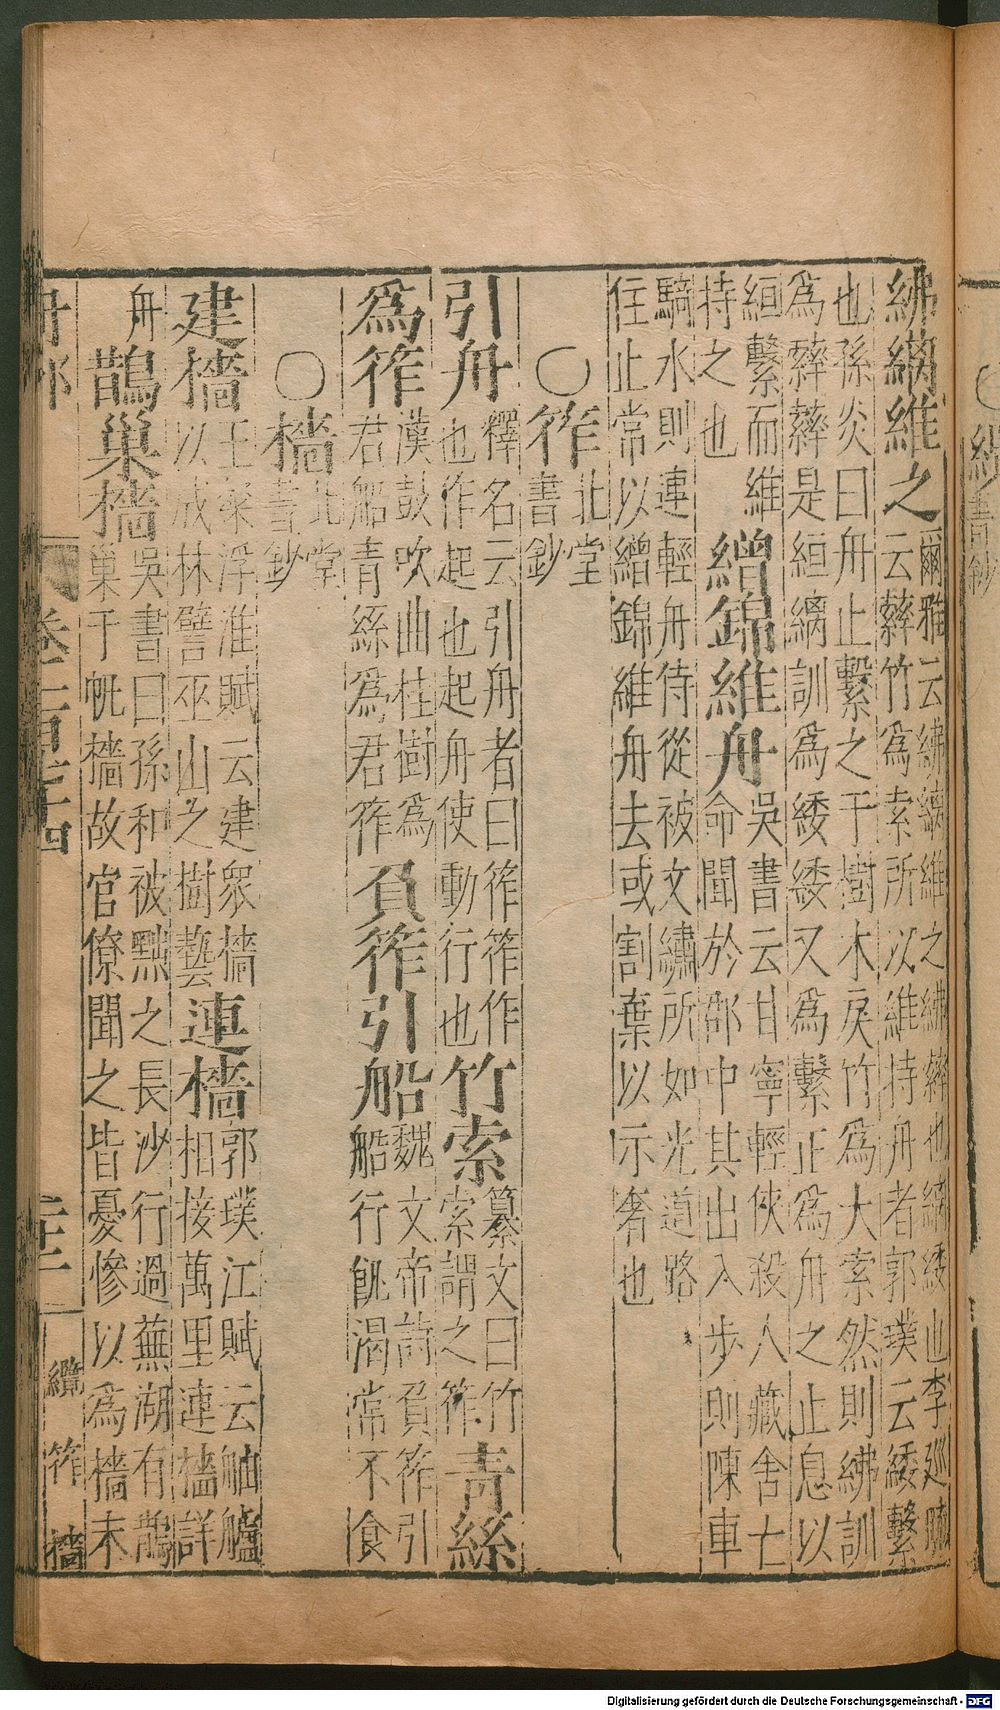 紼縭維之爾雅云紼縭維之紼繂也縭緌也李廵曒
云繂竹爲索所以維持舟者郭璞云緌繫
也孫炎曰舟止繫之于樹木戾竹爲大索然則紼訓
爲繂繂是絙縭訓爲緌緌又爲繫正爲舟之止息以
絙繫而維
持之也
繒錦維舟吳書云甘寧輕俠殺人藏舍亡
命聞於郡中其出入步則陳車
騎水則連輕舟侍從被文繡所如光道路
住止常以繒錦維舟去或割棄以示奢也
○筰北堂
書鈔
引舟釋名云引舟者曰筰筰作
也作起也起舟使動行也
竹索纂文曰竹
索謂之筰
青絲
爲筰漢鼓吹曲桂樹爲
君船青絲爲君筰
負筰引船魏文帝詩負筰引
船行飢渴常不食
○檣北堂
書鈔
建檣王粲浮淮賦云建衆檣
以成林譬巫山之樹藝
連檣郭璞江賦云舳艫
相接萬里連檣詳
舟
鵲巢檣吳書曰孫和被黜之長沙行過蕪湖有鵲
巢于帆檣故官僚聞之皆憂慘以爲檣末
舟部
纜 筰 檣
Digitalisierung gefördert durch die Deutsche Forschungsgemeinschaft - DFG